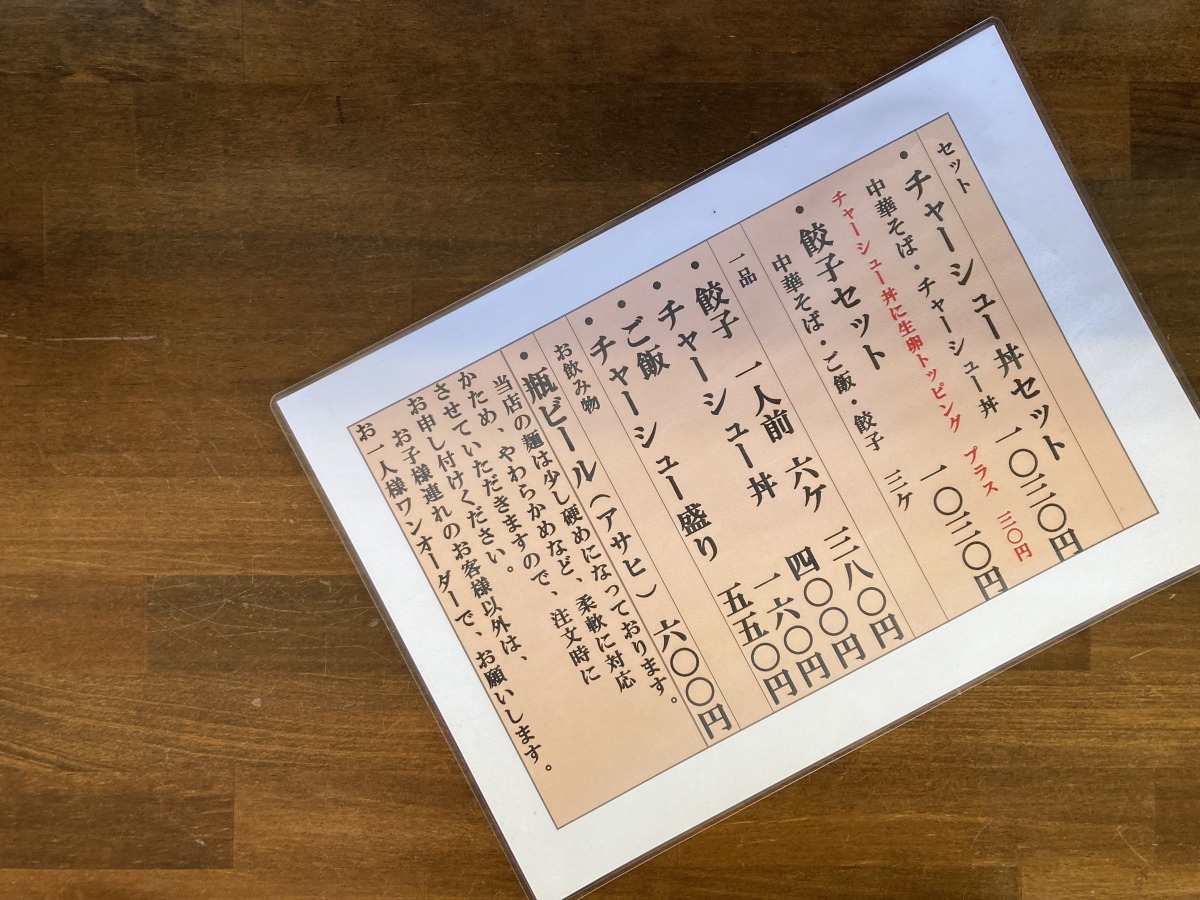 セット
・チャーシュー丼セット 一〇三〇円
中華そば・チャーシュー丼
チャーシュー丼に生卵トッピング プラス 三〇円
・餃子セット 一〇三〇円
中華そば・ご飯・餃子 三ケ
一品
・餃子 一人前 六ケ 三八〇円
・チャーシュー丼 四〇〇円
・ご飯 一六〇円
・チャーシュー盛り 五五〇円
お飲み物
・瓶ビール(アサヒ) 六〇〇円
当店の麺は少し硬めになっております。
かため、やわらかめなど、柔軟に対応
させていただきますので、注文時に
お申し付けください。
お子様連れのお客様以外は、
お一人様ワンオーダーで、お願いします。